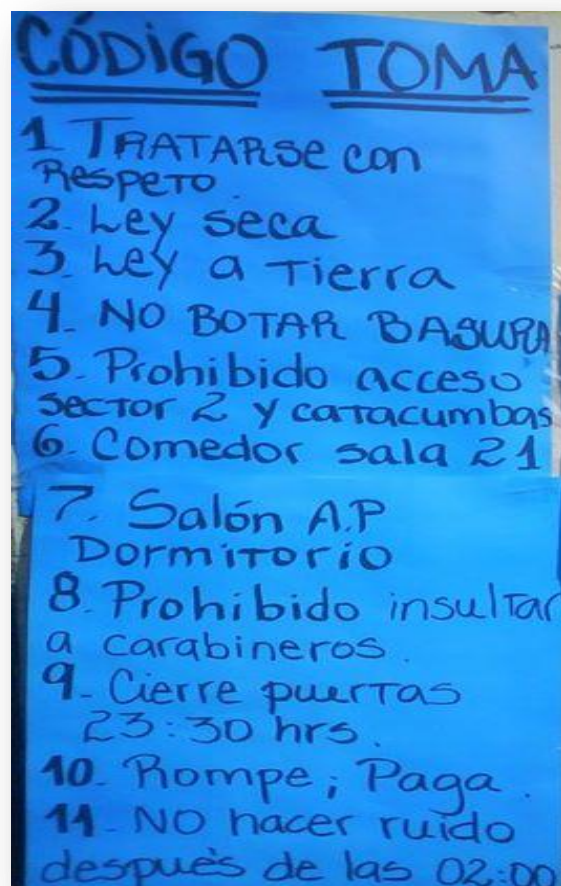 CÓDIGO TOMA
1 TRATARSE con
Respeto.
2. Ley seca
3. Ley a Tierra
4. NO BOTAR BASURA
5. Prohibido acceso
sector 2 y catacumbas
6. Comedor sala 21
7. Salón A.P
Dormitorio
8. Prohibido insultar
a carabineros.
9. Cierre puertas
23:30 hrs.
10. Rompe; Paga.
11. NO hacer ruido
después de las 02:00